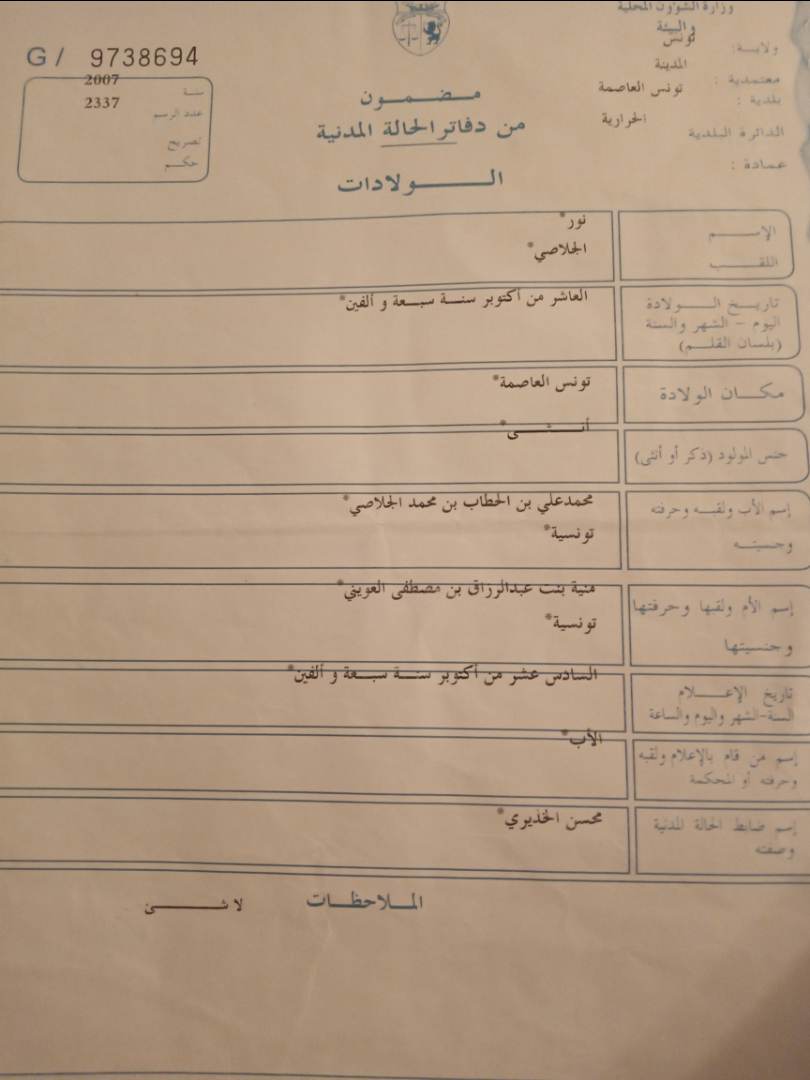 وزارة الشؤون المحلية
والبيئة
ولاية: تونس
معتمدية : المدينة
بلدية : تونس العاصمة
الدائرة البلدية الحرارية
عمادة :
G / 9738694
سنة 2007
عدد الرسم 2337
تصريح
حكم
مضمون
من دفاتر الحالة المدنية
الولادات
الإسم نور*
اللقب الجلاصي*
تاريخ الولادة العاشر من أكتوبر سنة سبعة و ألفين*
اليوم - الشهر والسنة
(بلسان القلم)
مكان الولادة تونس العاصمة*
جنس المولود (ذكر أو أنثى) أنثى*
إسم الأب ولقبه وحرفته محمدعلي بن الحطاب بن محمد الجلاصي*
وجنسيته تونسية*
إسم الأم ولقبها وحرفتها منية بنت عبدالرزاق بن مصطفى العويني*
وجنسيتها تونسية*
تاريخ الإعلام السادس عشر من أكتوبر سنة سبعة و ألفين*
السنة-الشهر واليوم والساعة
إسم من قام بالإعلام ولقبه الأب*
وحرفته أو المحكمة
إسم ضابط الحالة المدنية محسن الخذيري*
وصفته
الملاحظات لا شئ